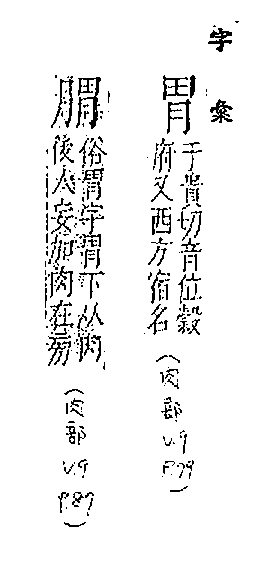 字彙
胃
于貴切音位穀
府又西方宿名
(肉部 V.9 P.79)
䐴
俗胃字胃下从肉
後人妄加肉在旁
(肉部 V.9 P.87)